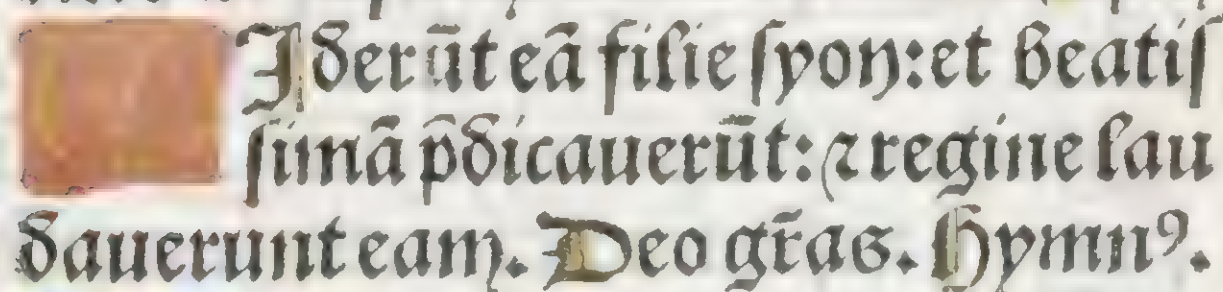 Iderūt eā filie syon: et beatis
simā p̄dicauerūt: ⁊ regine lau
dauerunt eam. Deo gr̄as. Hymnꝰ.